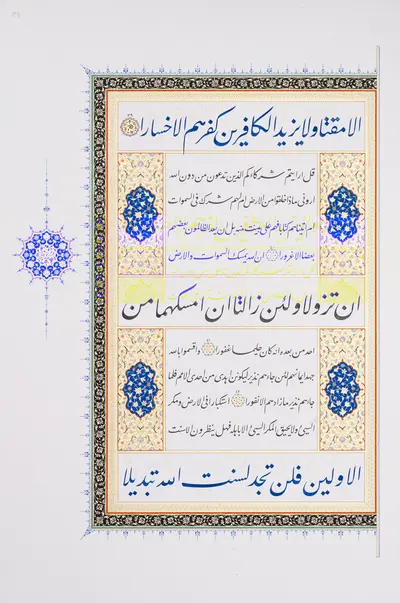 الا مقتا ولا يزيد الكافرين كفرهم الا خسارا
قل ارايتم شركاءكم الذين تدعون من دون الله
اروني ماذا خلقوا من الارض ام لهم شرك في السموات
ام اتيناهم كتابا فهم على بينت منه بل ان يعد الظالمون بعضهم
بعضا الا غرورا ان الله يمسك السموات والارض
ان تزولا ولئن زالتا ان امسكهما من
احد من بعده انه كان حليما غفورا واقسموا بالله
جهد ايمانهم لئن جاءهم نذير ليكونن اهدى من احدى الامم فلما
جاءهم نذير ما زادهم الا نفورا استكبارا في الارض ومكر
السيئ ولا يحيق المكر السيئ الا باهله فهل ينظرون الا سنت
الاولين فلن تجد لسنت الله تبديلا